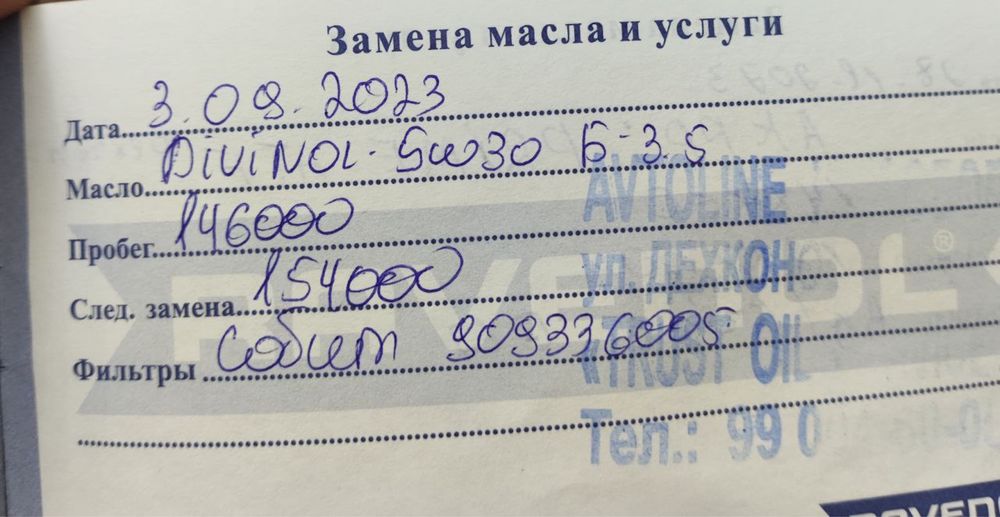 Замена масла и услуги
Дата 3.09.2023
Масло DiViNOL-5w30 Б-3.5
Пробег 146000
След. замена 154000
Фильтры Собит 909336005
AVTOLINE
ул. ДЕХКОН
«TRUST OIL
Тел.: 99 0
RAVENOL®
RAVENO